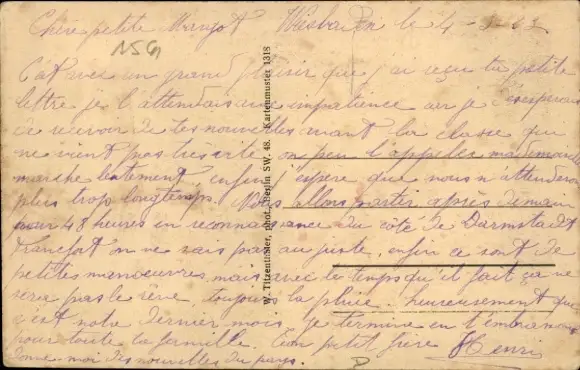 Chère petite Margot Wiesbaden le 4
NSG
C'est avec un grand plaisir que j'ai reçu ta petite
lettre je l'attendais avec impatience car je désespérais
de recevoir de tes nouvelles avant la classe qui
ne vient pas très vite on peu l'appeler ma demande
marche lentement, enfin j'espère que nous n'attendrons
plus trop longtemps. Nous allons partir après demain
pour 48 heures en reconnaissance du côté de Darmstadt
Francfort on ne sais pas au juste, enfin ce sont de
petites manœuvres mais avec le temps qu'il fait ça ne
sera pas le rêve, toujours la pluie. heureusement que
c'est notre dernier mois, je termine en t'embrassant
pour toute la famille. Ton petit frère Henri
donne-moi des nouvelles du pays.
W. Titzenthaler, phot., Berlin SW. 48. Kartenmuster 1318